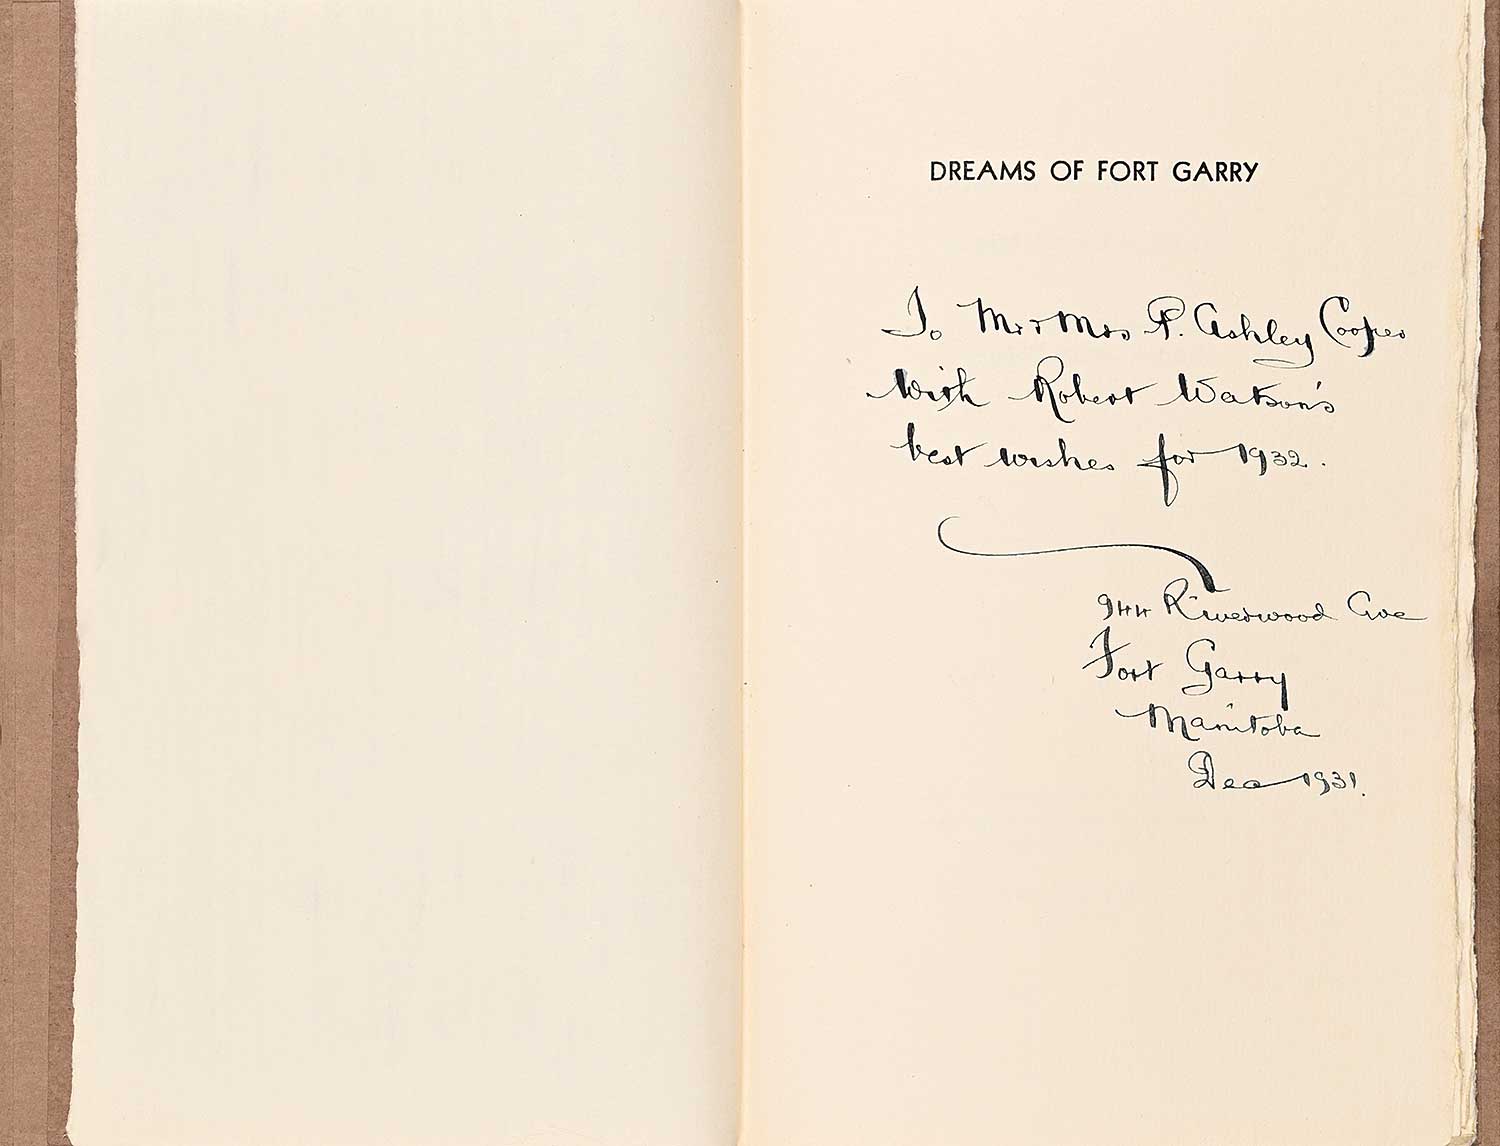 DREAMS OF FORT GARRY
To Mr + Mrs P. Ashley Cooper
With Robert Watson's
best wishes for 1932.
944 Riverwood Ave
Fort Garry
Manitoba
Dec 1931.